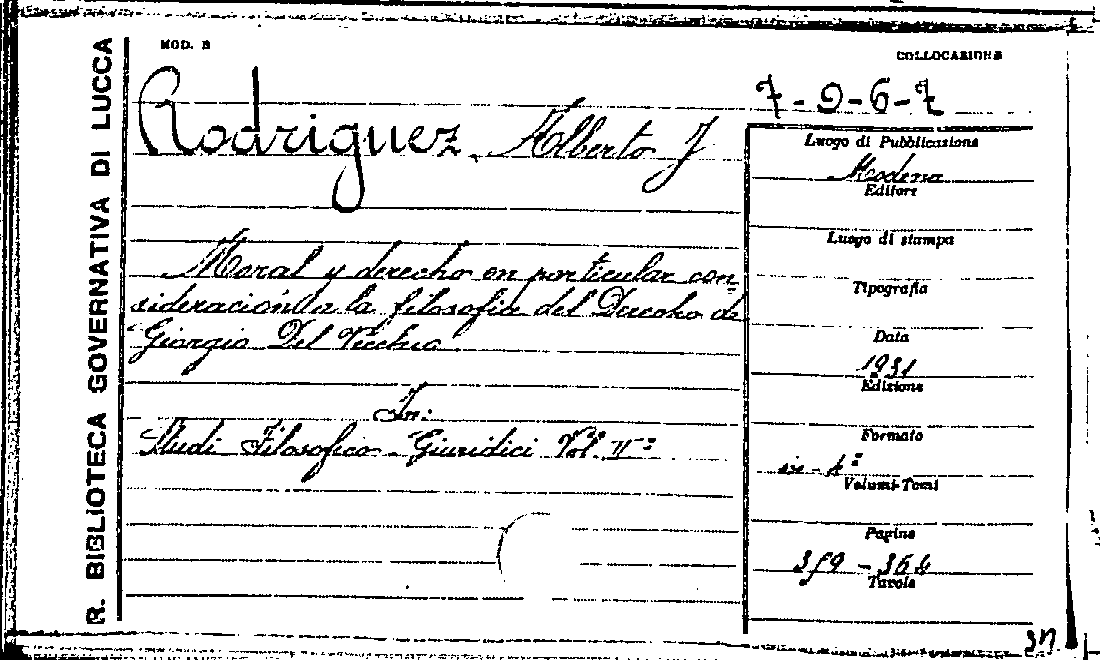 R. BIBLIOTECA GOVERNATIVA DI LUCCA
MOD. B
COLLOCAZIONE
7-9-6-7
Rodriguez, Alberto J
Moral y derecho en particular con-
sideración a la filosofia del Derecho de
Giorgio Del Vecchio
In:
Studi Filosofico-Giuridici Vol. II°
Luogo di Pubblicazione
Modena
Editore
Luogo di stampa
Tipografia
Data
1931
Edizione
Formato
in-4°
Volumi-Tomi
Pagine
359-364
Tavole